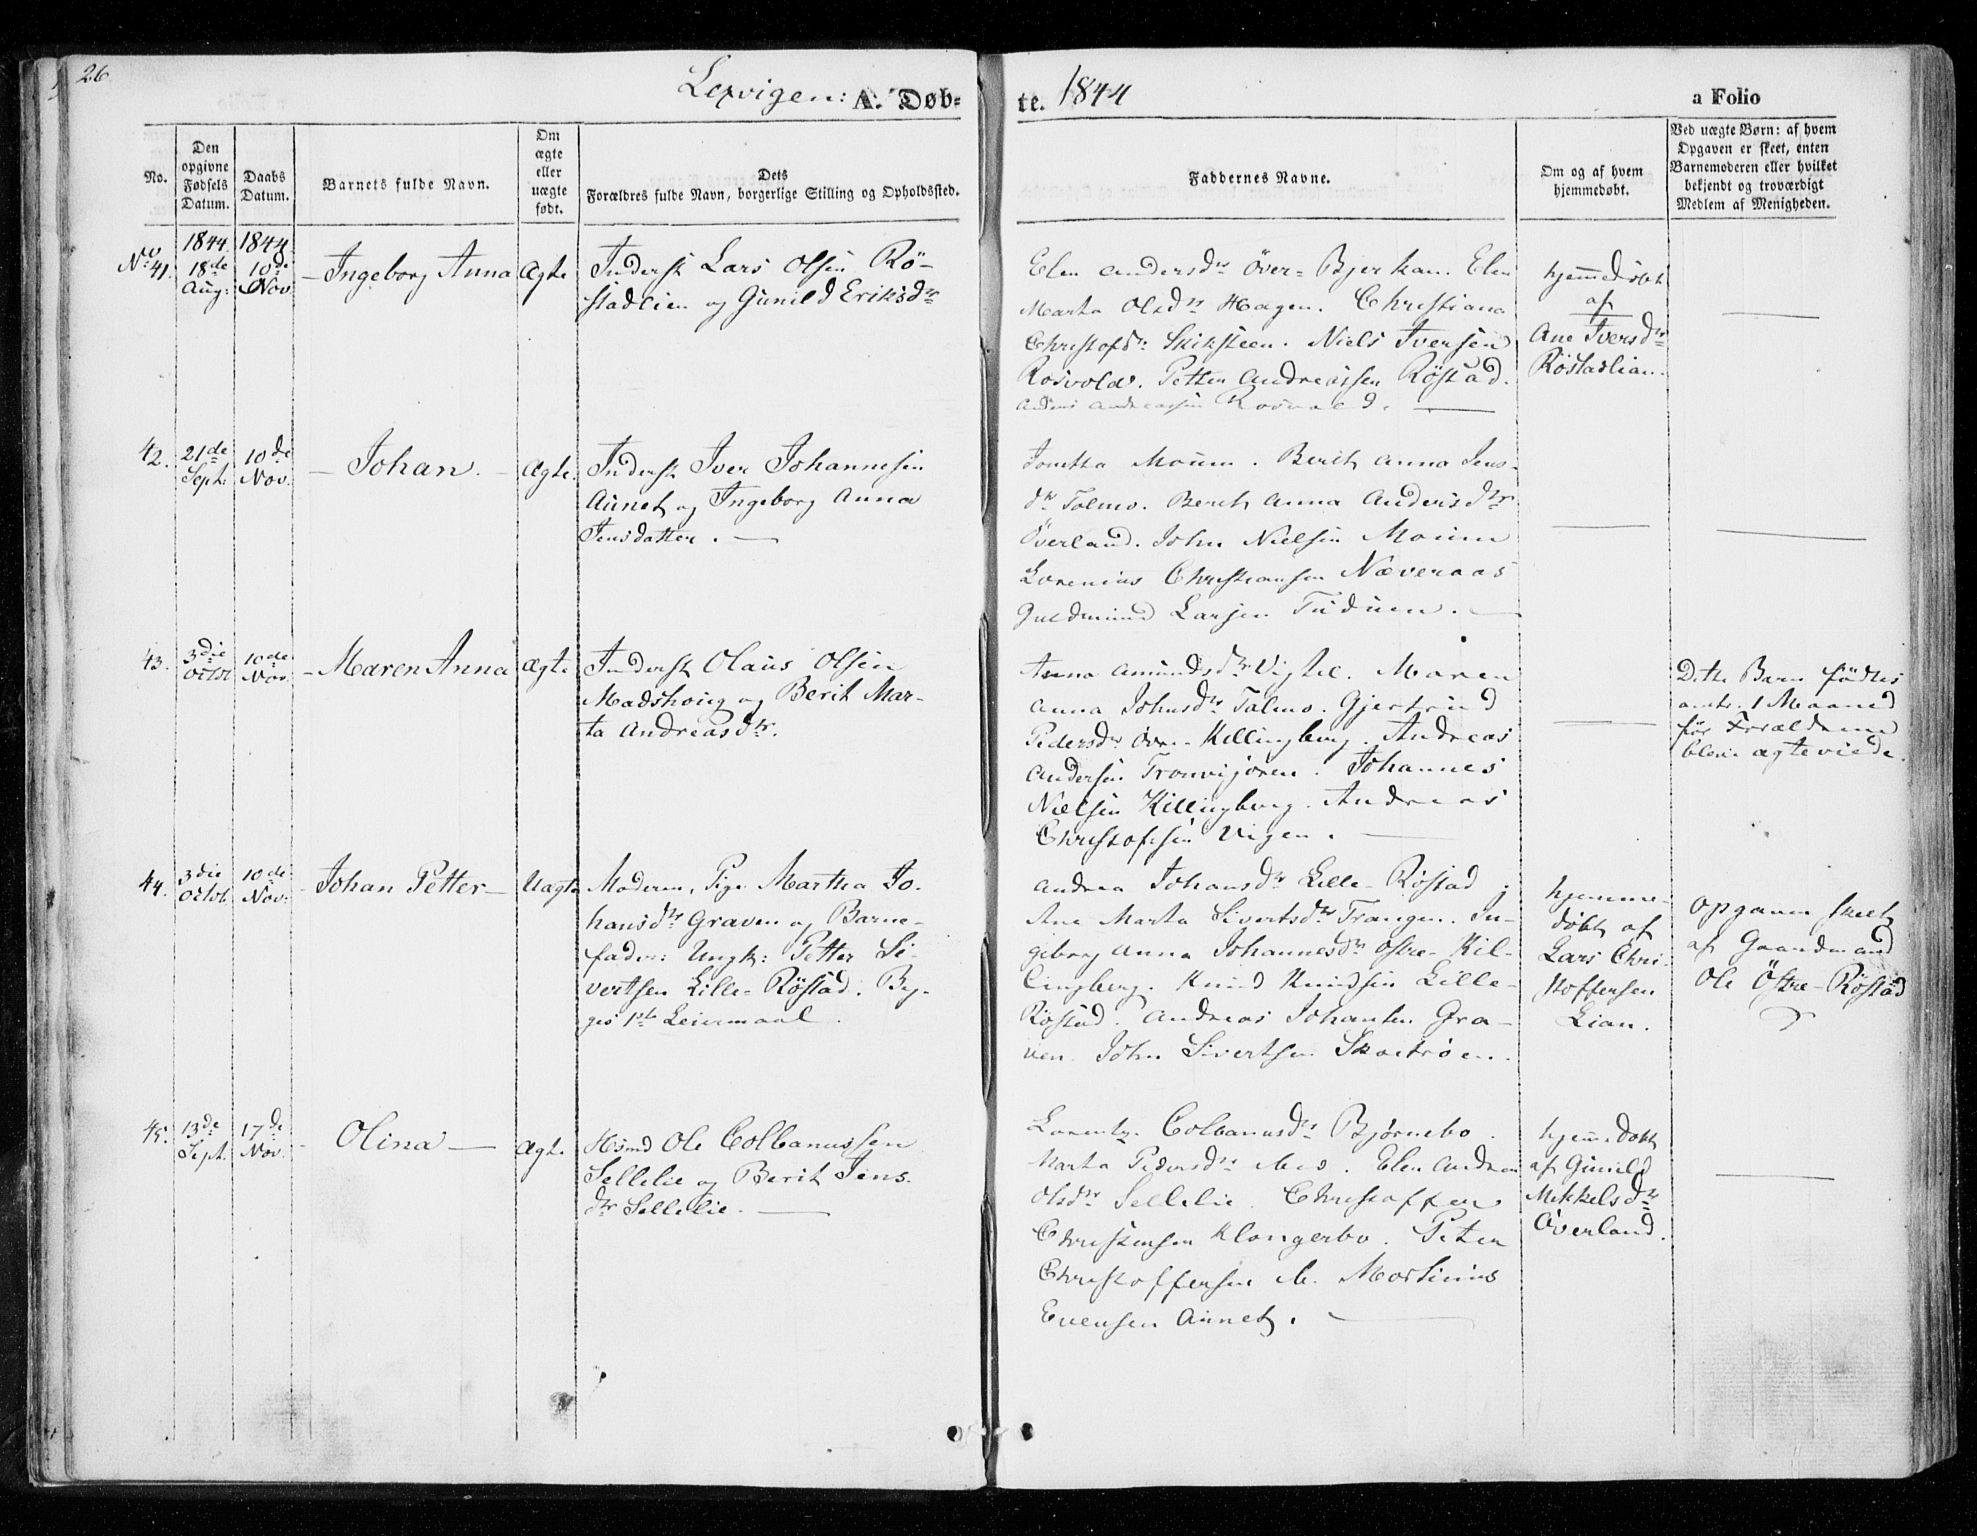 26
Lexvigen: A. Døb-
te. 1844
a Folio
No.
Den opgivne Fødsels Datum.
Daabs Datum.
Barnets fulde Navn.
Om ægte eller uægte født.
Dets
Forældres fulde Navn, borgerlige Stilling og Opholdssted.
Faddernes Navne.
Om og af hvem hjemmedøbt.
Ved uægte Børn: af hvem Opgaven er skeet, enten Barnemoderen eller hvilket bekjendt og troværdigt Medlem af Menigheden.
No 41.
1844. 18de Aug:
1844 10de Nov
Ingeborg Anna
Ægte
Inderst Lars Olsen Rö-
stadlien og Gunild Eriksdr
Elen Andersdr Över-Bjerkan. Elen
Marta Olsdr Hagen. Christiana
Christofsdr Skiksteen. Niels Iversen
Rosvold. Petter Andreassen Röstad.
Andreassen
hjemmedöbt
af
Ane Iversdr
Röstadlian.
42.
21de Sept:
10de Nov.
Johan.
Ægte.
Inderst Iver Johannesen
Aunet og Ingeborg Anna
Jensdatter.
Mouin. Berit Anna Jens-
dr Tolmo. Berit Anna Andersdtr
Överland. John Nielsen Mouin
Lorenius Christiansen Næveraas
Guldmund Larsen Tuduen.
43.
3die Octbr
10de Nov
Maren Anna
Ægte
Inderst Olaus Olsen
Madshoug og Berit Mar-
ta Andreasdtr.
Anna Amundsdtr Maren
Anna Johnsdr Tolmo. Gjertrud
Pedersdr Övre-Killingberg. Andreas
Andersen Tronvigören. Johannes
Nielsen Killingberg. Andreas
Christofersen Vigen.
Dette Barn födtes
omtr. 1 Maaned
för Forældrene
bleve ægteviede.
44.
3die Octob.
10de Nov:
Johan Petter
Uægte
Moderen, Pige Martha Jo-
hansdtr Graven og Barne-
fader: Ungk: Petter Si-
vertsen Lille-Röstad. Beg-
ges 1ste Leiermaal.
Andrea Johansdr Lille-Röstad.
Ane Marta Sivertsdtr Trangen. In-
geborg Anna Johannesdr Östre-Kil-
lingberg. Knud Knudsen Lille-
Röstad. Andreas Johansen Gra-
ven. John Sivertsen
hjemme-
döbt af
Lars Chri-
stoffersen
Lian.
Opgaven skeet
af Gaardmand
Ole Östre-Röstad
45.
13de Sept.
17de Nov.
Olina
Ægte
Hsmd Ole Colbanussen
Sellelie og Berit Jens-
dtr Sellelie.
Colbanusdr Björnebo.
Marta Pedersdr Elen Andrea
Olsdr Sellelie. Christoffer
Christensen Klongerbo. Peter
Christoffersen Mortinius
Evensen Aunet.
hjemmedöbt
af Gunild
Mikkelsdtr
Överland.